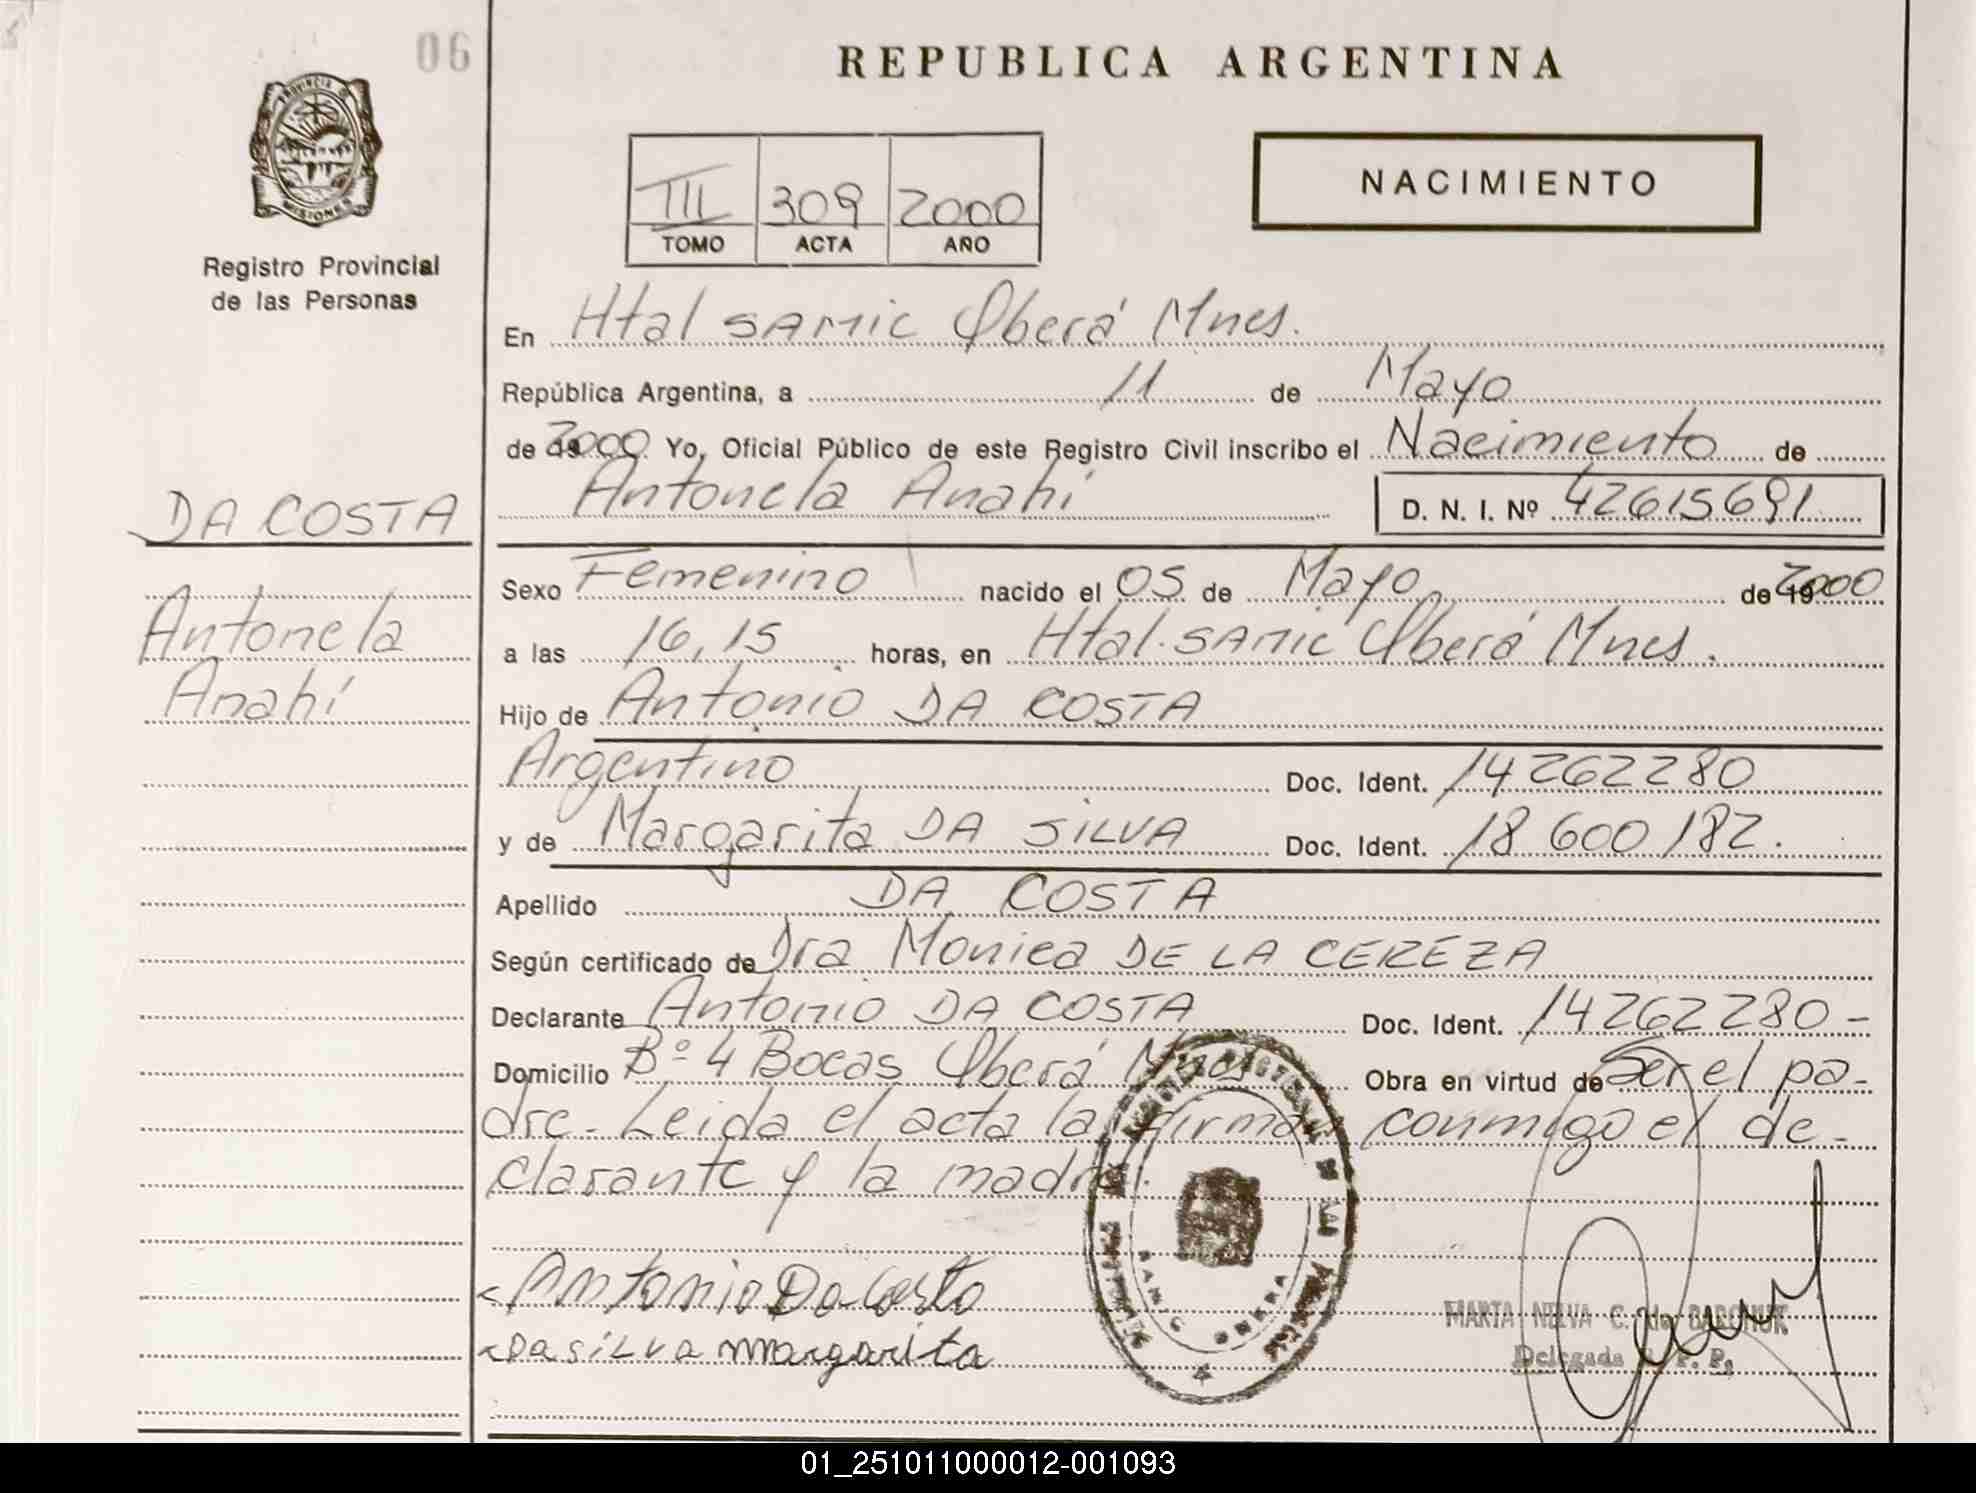 06
REPUBLICA ARGENTINA
PROVINCIA D
MISIONES
Registro Provincial
de las Personas
III 309 2000
TOMO ACTA AÑO
NACIMIENTO
En Htal SAMIC Oberá Mnes.
República Argentina, a 11 de Mayo
de 2000 Yo, Oficial Público de este Registro Civil inscribo el Nacimiento de
DA COSTA
Antonela Anahí D. N. I. Nº 42615691
Sexo Femenino nacido el 05 de Mayo de 2000
Antonela
a las 16,15 horas, en Htal. SAMIC Oberá Mnes.
Anahí
Hijo de Antonio DA COSTA
Argentino Doc. Ident. 14262280
y de Margarita DA SILVA Doc. Ident. 18 600 182.
Apellido DA COSTA
Según certificado de Dra Monica DE LA CEREZA
Declarante Antonio DA COSTA Doc. Ident. 14262280-
Domicilio Bº 4 Bocas Oberá Mnes Obra en virtud de Ser el pa-
dre. Leida el acta la firman conmigo el de-
clarante y la madre.
Antonio Da Costa
DA SILVA margarita
SAMIC OBERA
MARTA NELVA C. de
Delegada R. P. P.
01_251011000012-001093